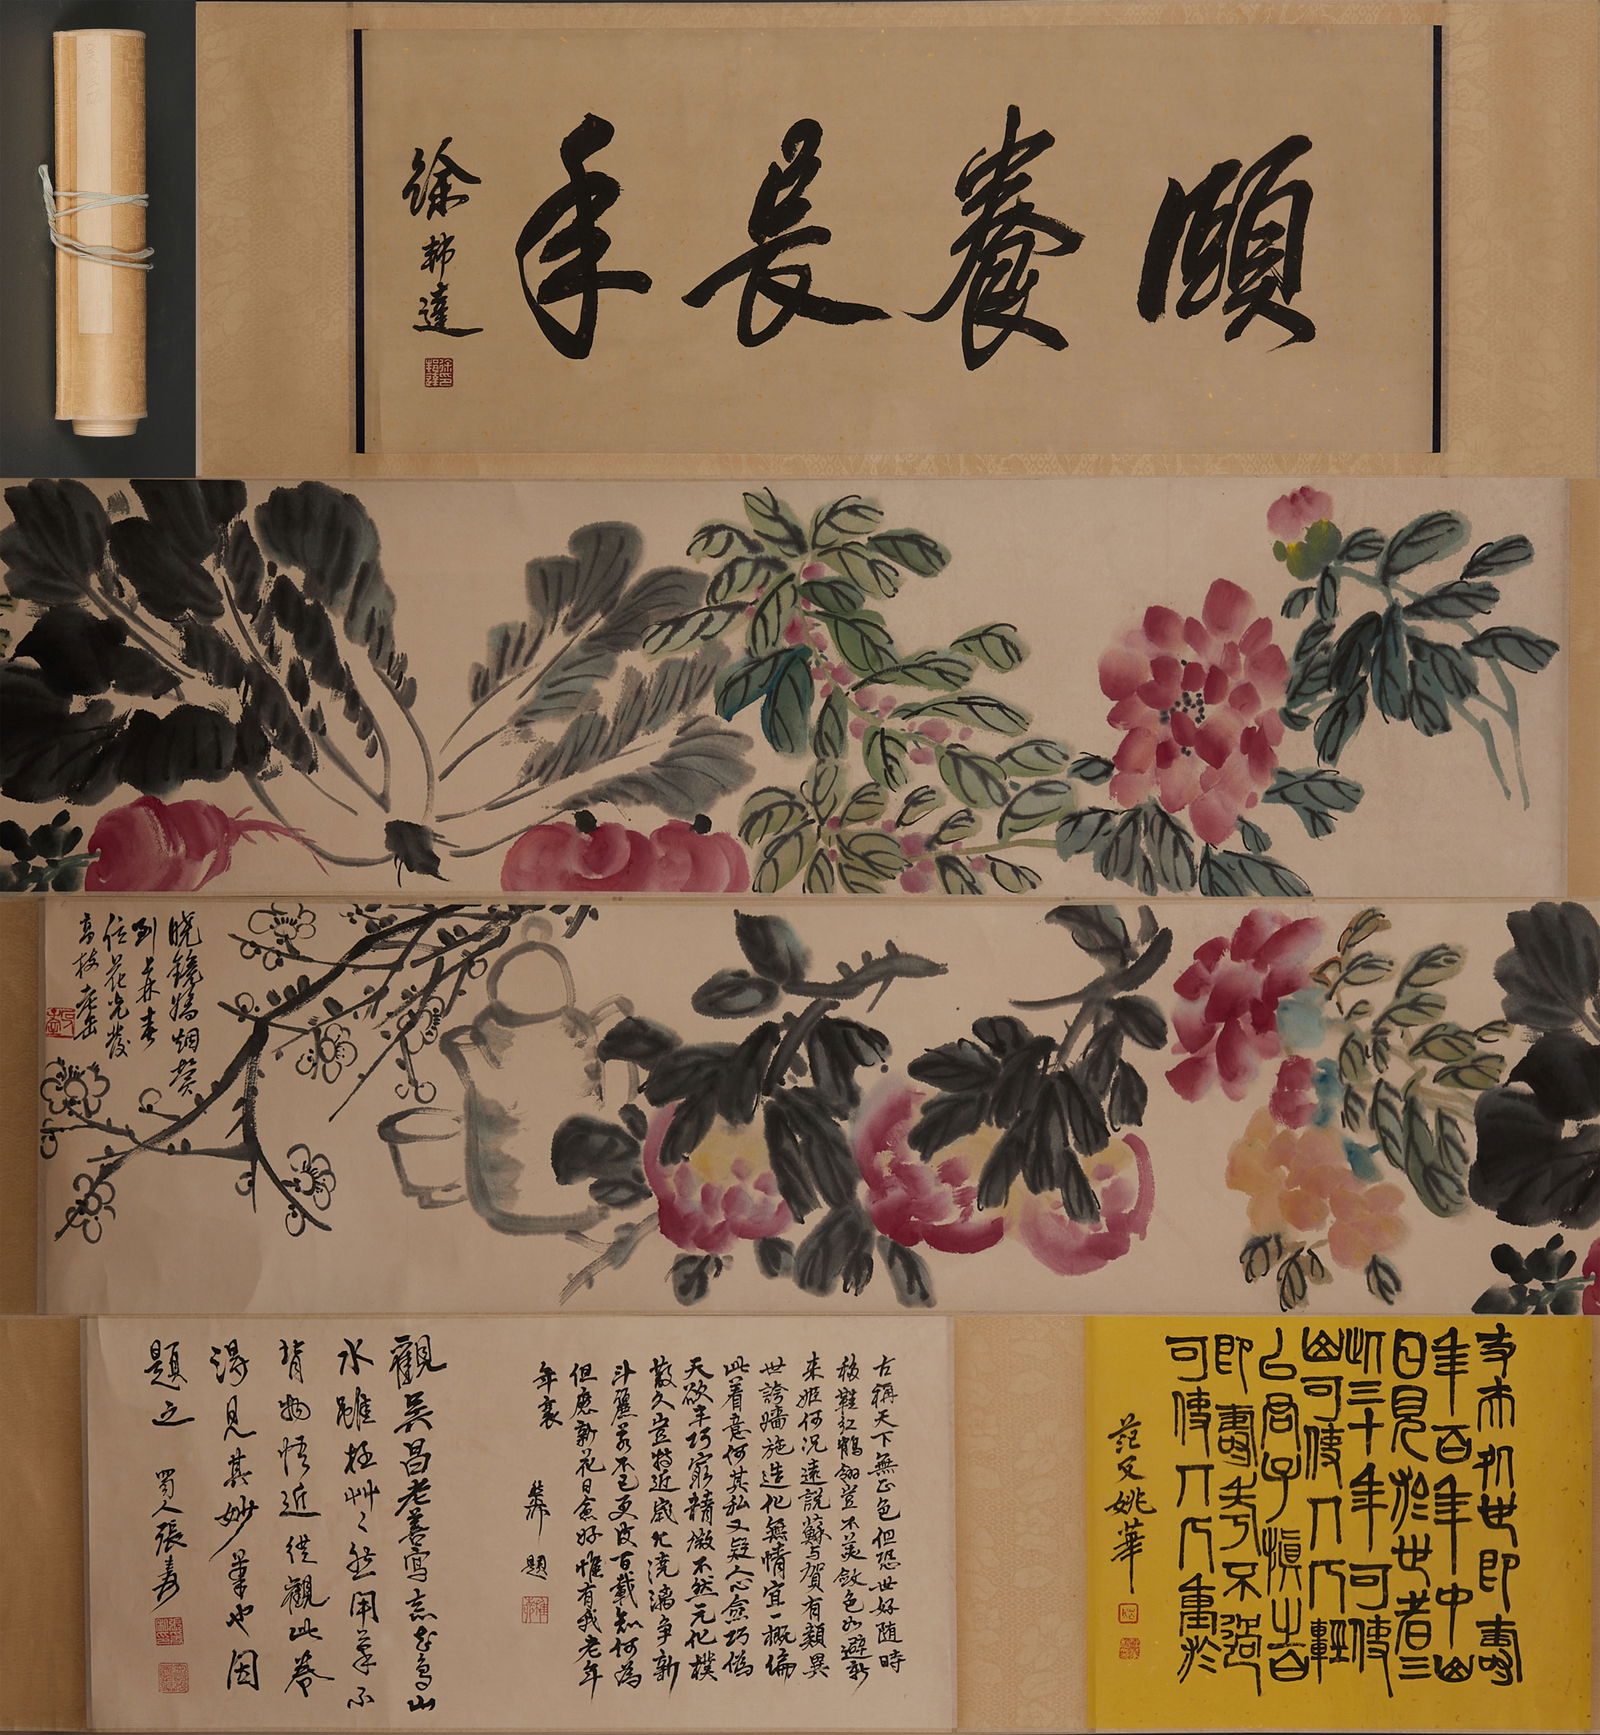 頤養長年
徐邦達
曉鏡嬌烟鬢
春
位花光發
高枝 老缶
即壽
年百年中山
日見於世者三
此三十年可使
山可使 輕
以君子慎
即壽 不強
可使 重於
范父姚華
古稱天下無正色但恐世好隨時
移鞓紅鶴翎豈不美斂色如避新
來姬何況遠說蘇與賀有類異
世誇嬙施造化無情宜一概偏
此着意何其私又疑人心愈巧偽
天欲 巧窮精微不然元化樸
散久豈特近歲尤澆漓爭新
斗麗若不已更後百載知何為
但應新花日愈好惟有我老年
年衰
題
觀吳昌老善寫意 鳥山
水雖極艸艸然用筆不
背物情近從觀此卷
得見其妙筆也因
題之 蜀人張爰